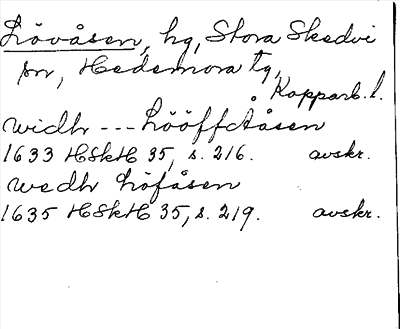 Lövåsen, hg, Stora Skedvi
sn, Hedemora tg,
Kopparb. l.
widh --- Lööffååsen
1633 HSkH 35, s. 216. avskr.
wedh Löfåsen
1635 HSkH 35, s. 219. avskr.